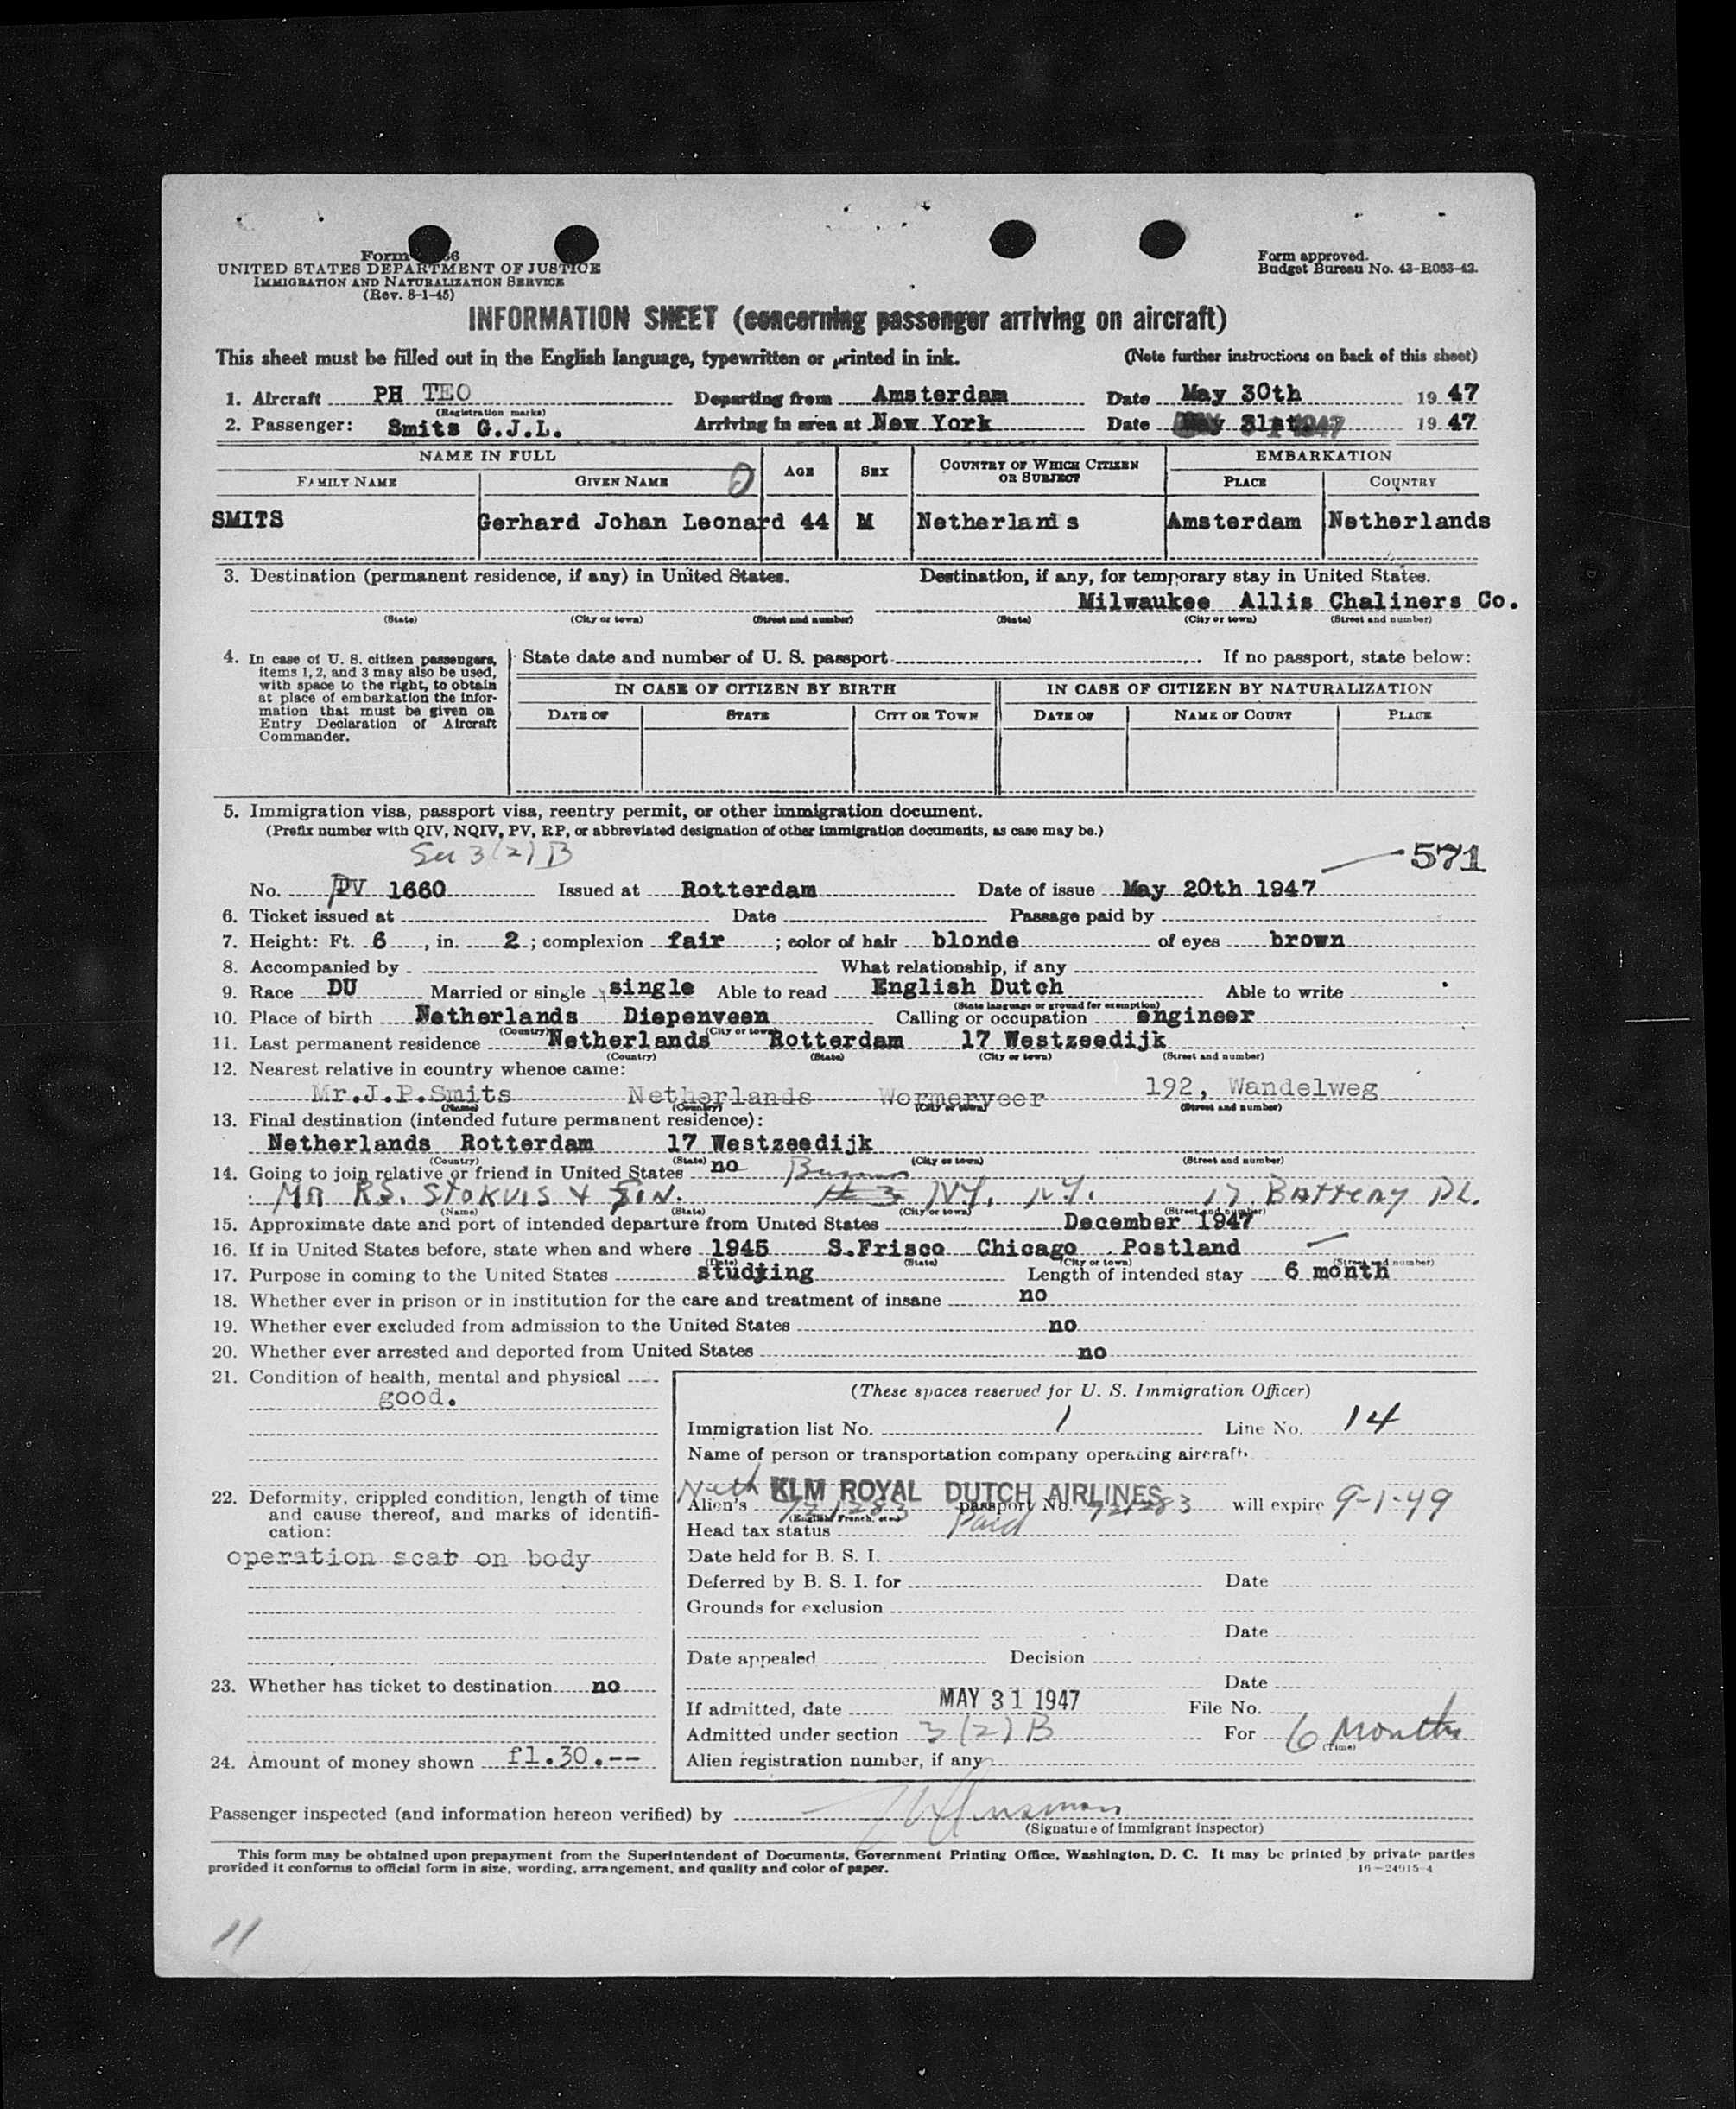 Form 66
UNITED STATES DEPARTMENT OF JUSTICE
IMMIGRATION AND NATURALIZATION SERVICE
(Rev. 8-1-45)
Form approved.
Budget Bureau No. 43-R063-42.
INFORMATION SHEET (concerning passenger arriving on aircraft)
This sheet must be filled out in the English language, typewritten or printed in ink. (Note further instructions on back of this sheet)
1. Aircraft PH TEO Departing from Amsterdam Date May 30th 1947
(Registration marks)
2. Passenger: Smits G.J.L. Arriving in area at New York Date May 31st 1947
NAME IN FULL AGE SEX COUNTRY OF WHICH CITIZEN OR SUBJECT EMBARKATION
FAMILY NAME GIVEN NAME PLACE COUNTRY
SMITS Gerhard Johan Leonard 44 M Netherlands Amsterdam Netherlands
3. Destination (permanent residence, if any) in United States. Destination, if any, for temporary stay in United States.
Milwaukee Allis Chaliners Co.
(State) (City or town) (Street and number) (State) (City or town) (Street and number)
4. In case of U. S. citizen passengers, items 1, 2, and 3 may also be used, with space to the right, to obtain at place of embarkation the information that must be given on Entry Declaration of Aircraft Commander.
State date and number of U. S. passport If no passport, state below:
IN CASE OF CITIZEN BY BIRTH IN CASE OF CITIZEN BY NATURALIZATION
DATE OF STATE CITY OR TOWN DATE OF NAME OF COURT PLACE
5. Immigration visa, passport visa, reentry permit, or other immigration document.
(Prefix number with QIV, NQIV, PV, RP, or abbreviated designation of other immigration documents, as case may be.)
3(2)B 571
No. PV 1660 Issued at Rotterdam Date of issue May 20th 1947
6. Ticket issued at Date Passage paid by
7. Height: Ft. 6, in. 2; complexion fair; color of hair blonde of eyes brown
8. Accompanied by What relationship, if any
9. Race DU Married or single single Able to read English Dutch Able to write
(State language or ground for exemption)
10. Place of birth Netherlands Diepenveen Calling or occupation engineer
(Country) (City or town)
11. Last permanent residence Netherlands Rotterdam 17 Westzeedijk
(Country) (State) (City or town) (Street and number)
12. Nearest relative in country whence came:
Mr.J.P.Smits Netherlands Wormerveer 192, Wandelweg
(Name) (Country) (City or town) (Street and number)
13. Final destination (intended future permanent residence):
Netherlands Rotterdam 17 Westzeedijk
(Country) (State) (City or town) (Street and number)
14. Going to join relative or friend in United States no
Mr R.S. STOKVIS & N.Y. N.Y. 17 BATTERY PL.
(Name) (State) (City or town) (Street and number)
15. Approximate date and port of intended departure from United States December 1947
16. If in United States before, state when and where 1945 S.Frisco Chicago Postland
(Date) (State) (City or town) (Street and number)
17. Purpose in coming to the United States studying Length of intended stay 6 month
18. Whether ever in prison or in institution for the care and treatment of insane no
19. Whether ever excluded from admission to the United States no
20. Whether ever arrested and deported from United States no
21. Condition of health, mental and physical
good.
22. Deformity, crippled condition, length of time and cause thereof, and marks of identification:
operation scar on body
23. Whether has ticket to destination no
24. Amount of money shown fl.30.--
(These spaces reserved for U. S. Immigration Officer)
Immigration list No. 1 Line No. 14
Name of person or transportation company operating aircraft
KLM ROYAL DUTCH AIRLINES
Neth
Alien's 721283 passport No. 721283 will expire 9-1-49
(English, French, etc.)
Head tax status Paid
Date held for B. S. I.
Deferred by B. S. I. for Date
Grounds for exclusion
Date
Date appealed Decision
Date
If admitted, date MAY 31 1947 File No.
Admitted under section 3(2)B For 6 Months
(Time)
Alien registration number, if any
Passenger inspected (and information hereon verified) by
(Signature of immigrant inspector)
This form may be obtained upon prepayment from the Superintendent of Documents, Government Printing Office, Washington, D. C. It may be printed by private parties
provided it conforms to official form in size, wording, arrangement, and quality and color of paper. 16-24915-4
11